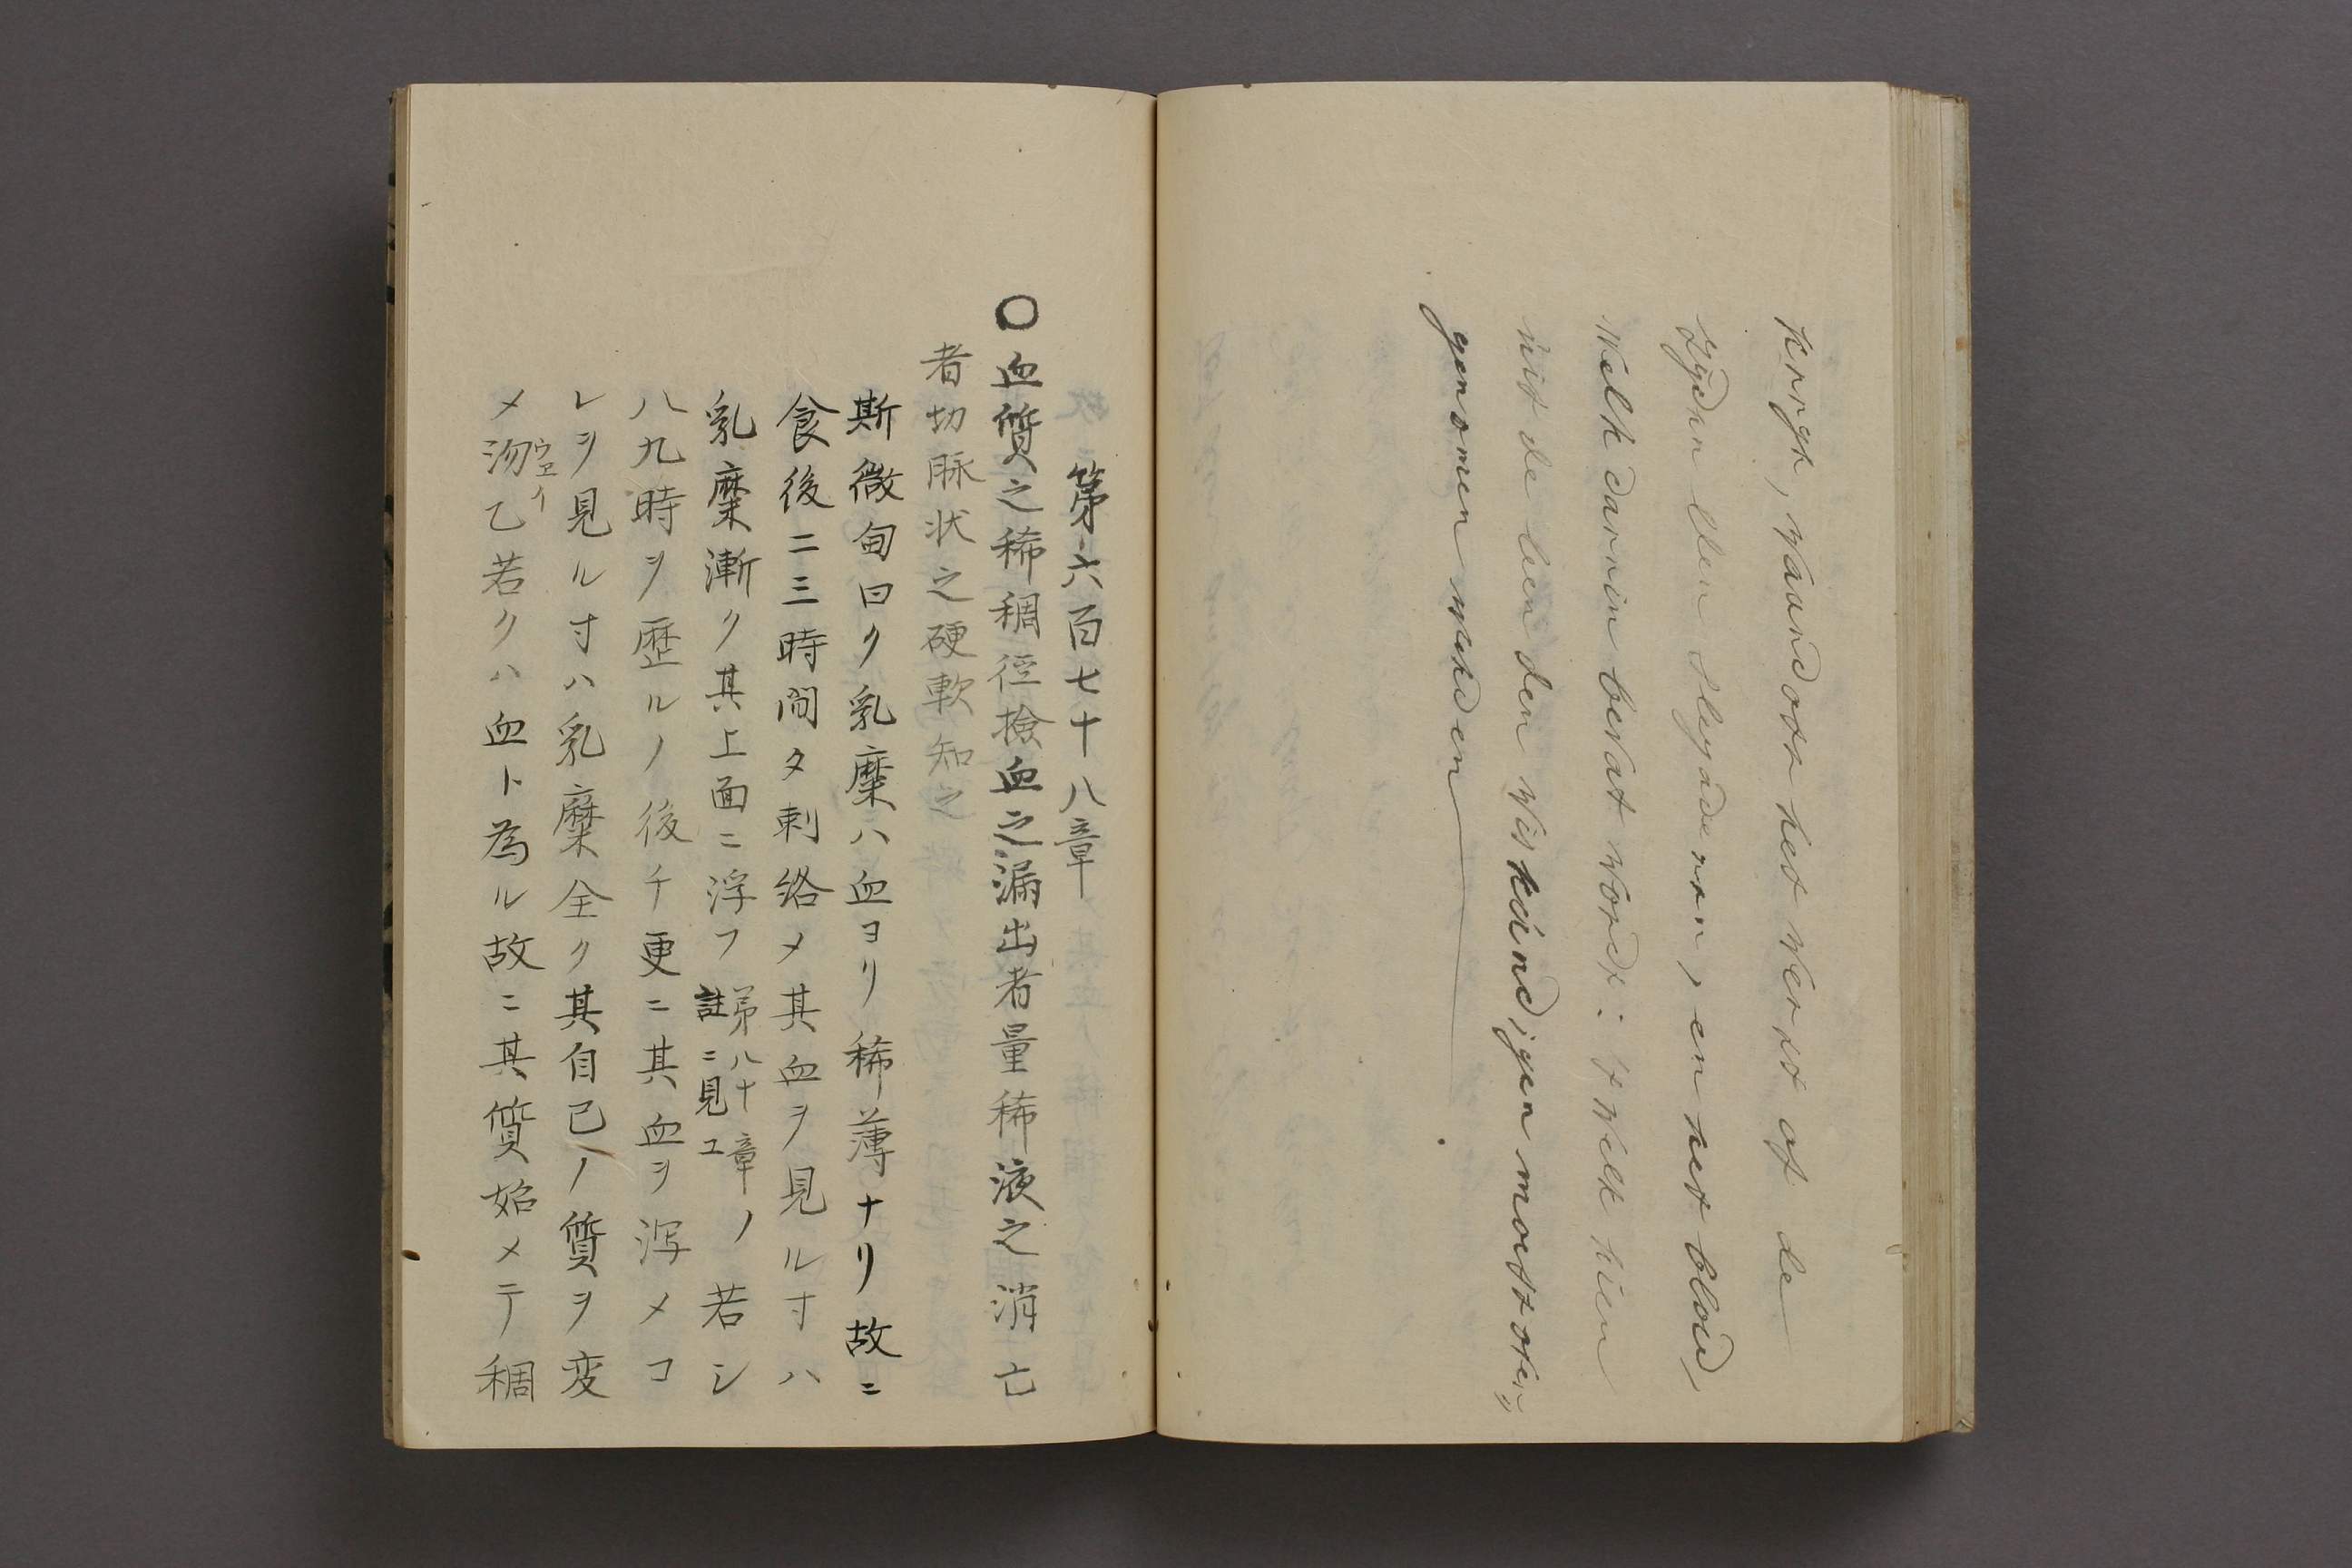 krygt, waardoor het werdt op de
zyden den slegaderen, en het bloed,
welk daarin bevat wordt: 't welk hier
uit de leer den wiskúndigen moest oter,,
genomen werden
第六百七十八章
〇血質之稀稠径撿血之漏出者量稀液之消亡
者切脉状之硬軟知之
斯微甸曰ク乳糜ハ血ヨリ稀薄ナリ故ニ
食後二三時間タ刺絡メ其血ヲ見ル寸ハ
乳糜漸ク其上面ニ浮フ第八十章ノ註ニ見ユ若シ
八九時ヲ歴ルノ後チ更ニ其血ヲ瀉メコ
レヲ見ル寸ハ乳糜全ク其自己ノ質ヲ変
メ沕乙ウエイ若クハ血ト為ル故ニ其質始メテ稠